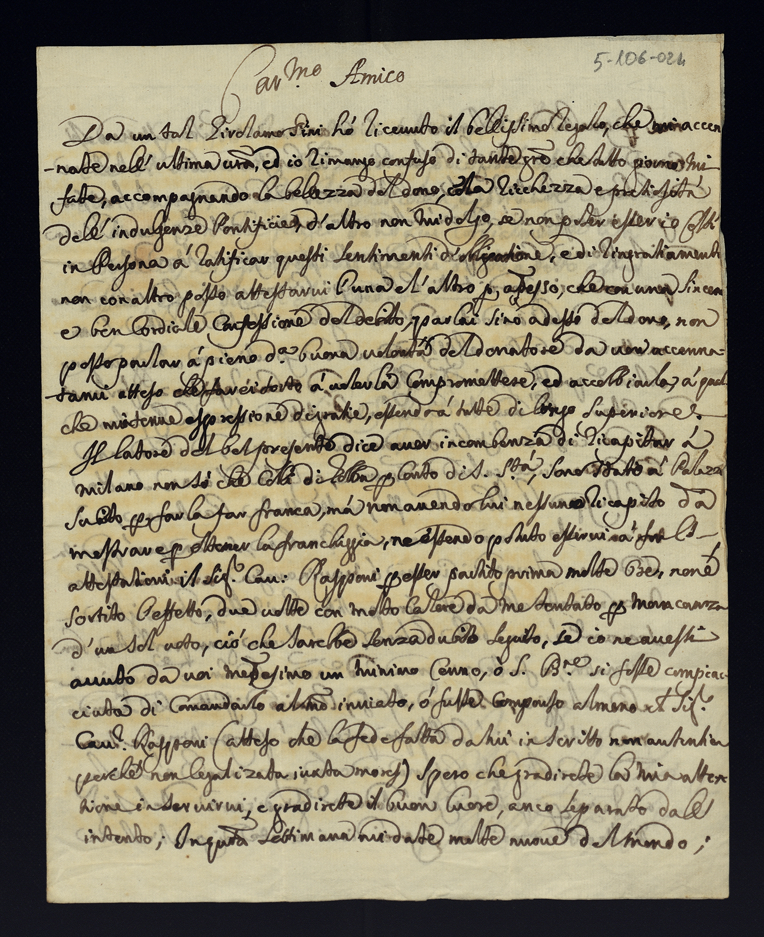 5-106-024
Car.mo Amico
Da un tal Girolamo Sini hò riceuuto il bellissimo regalo, che mi accen
-nate nell' ultima ura, ed io rimango confuso di tante gre che tutto giorno mi
fate, accompagnando la bellezza del dono, colla ricchezza e pretiosità
dell' indulgenze Pontificie, d'altro non mi dolgo, se non poter esser io costì
in Persona à ratificar questi sentimenti d'obligatione, e di ringratiamenti
non con altro posso attestarui l'una el' altro p adesso, che con una sincera
e ben cordiale confessione del debito, parlai sino adesso del dono, non
posso parlar à pieno da buona uolontà del donatore da uoi accenna-
-tami atteso che farei torto à uolerla compromettere, ed accoppiarla à qual
che mia tenue espressione di gratie, essendo à tutte di longo superiore.
Il latore del bel presente dice auer incombenza di ricapitar à
Milano non sò che Colli di p conto di S. Stà, sono stato à Palazzo
subito p farla far franca, mà non auendo lui nessuno ricapito da
mostrare p ottener la franchiggia, ne essendo potuto
attestationi il Sig.r Cau.r Rasponi p esser partito prima molte ore, non è
sortito l'effetto, due uolte con molto calore da me tentato p mancanza
d'un sol uoto, ciò che sarebbe senza dubio seguito, se io ne auessi
auuto da uoi medesimo un minimo cenno, ò S. B.ne si fosse compiac-
ciuta di comandarlo al suo inuiato, ò fusse comparso almeno il Sig.r
Cau.r Rasponi (atteso che la fede fatta da lui in scritto non autentica
perche non legalizata iuxta mores) spero che gradirete la mia atten
tione in seruirui, e gradirete il buon cuore, anco separato dall'
intento; In questa settimana mi date molte nuoue del mondo;